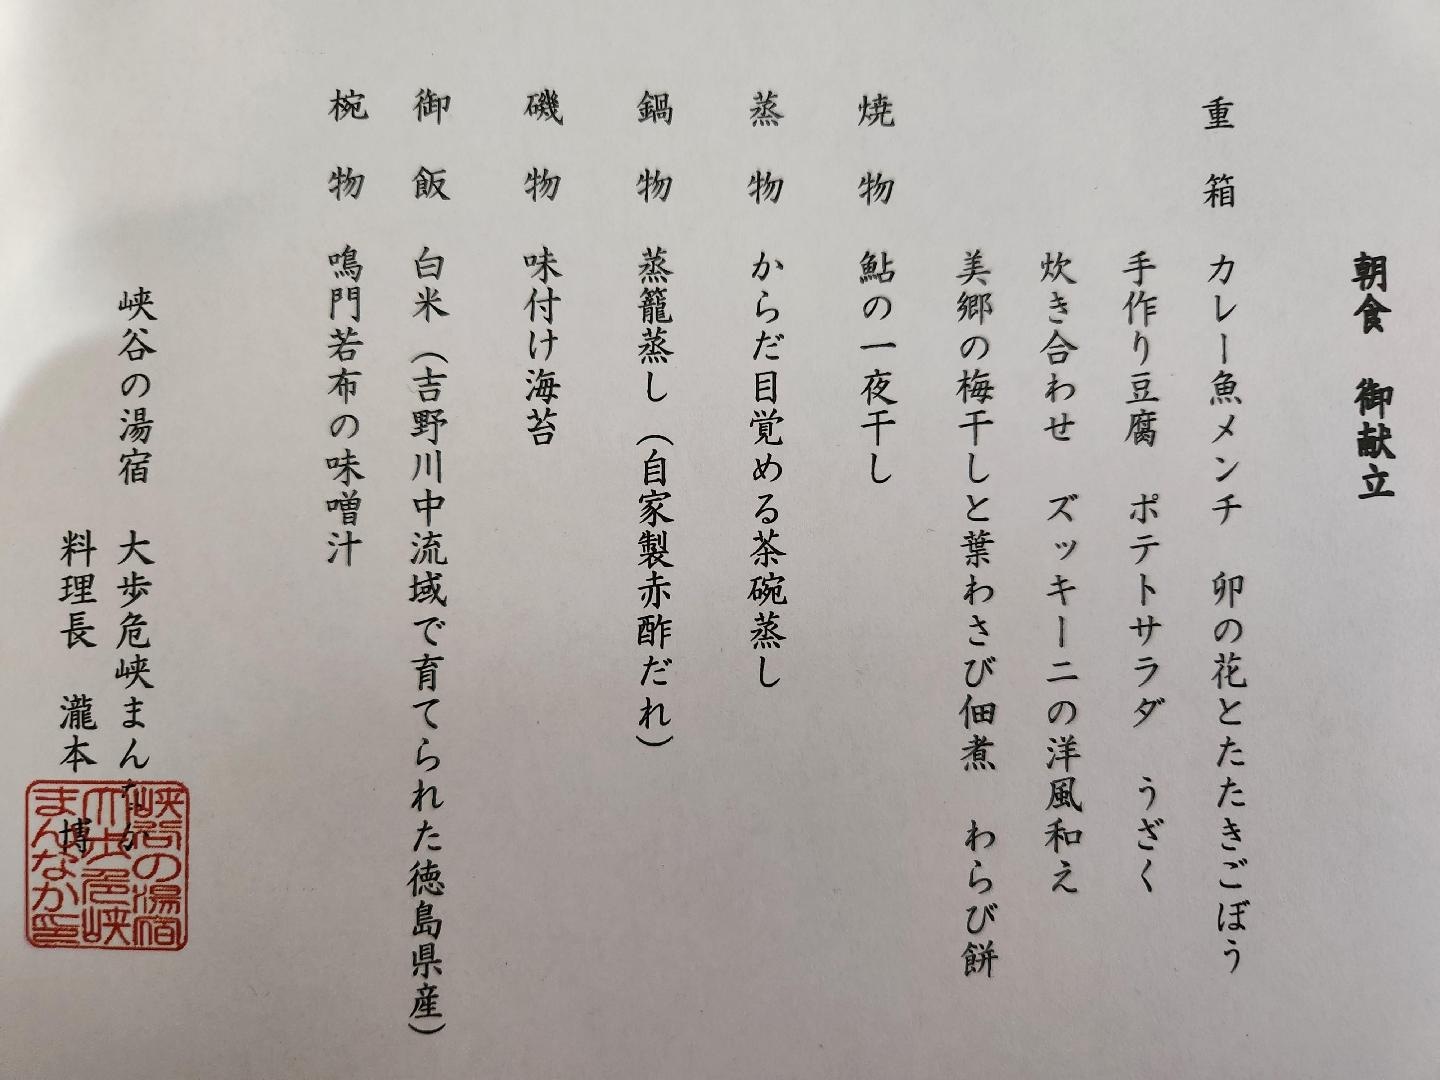 朝食　御献立
重箱　カレー魚メンチ　卯の花とたたきごぼう
手作り豆腐　ポテトサラダ　うざく
炊き合わせ　ズッキーニの洋風和え
美郷の梅干しと葉わさび佃煮　わらび餅
焼物　鮎の一夜干し
蒸物　からだ目覚める茶碗蒸し
鍋物　蒸籠蒸し（自家製赤酢だれ）
磯物　味付け海苔
御飯　白米（吉野川中流域で育てられた徳島県産）
椀物　鳴門若布の味噌汁
峡谷の湯宿　大歩危峡まんなか
料理長　瀧本　博
峡谷の湯宿
大歩危峡
まんなか印